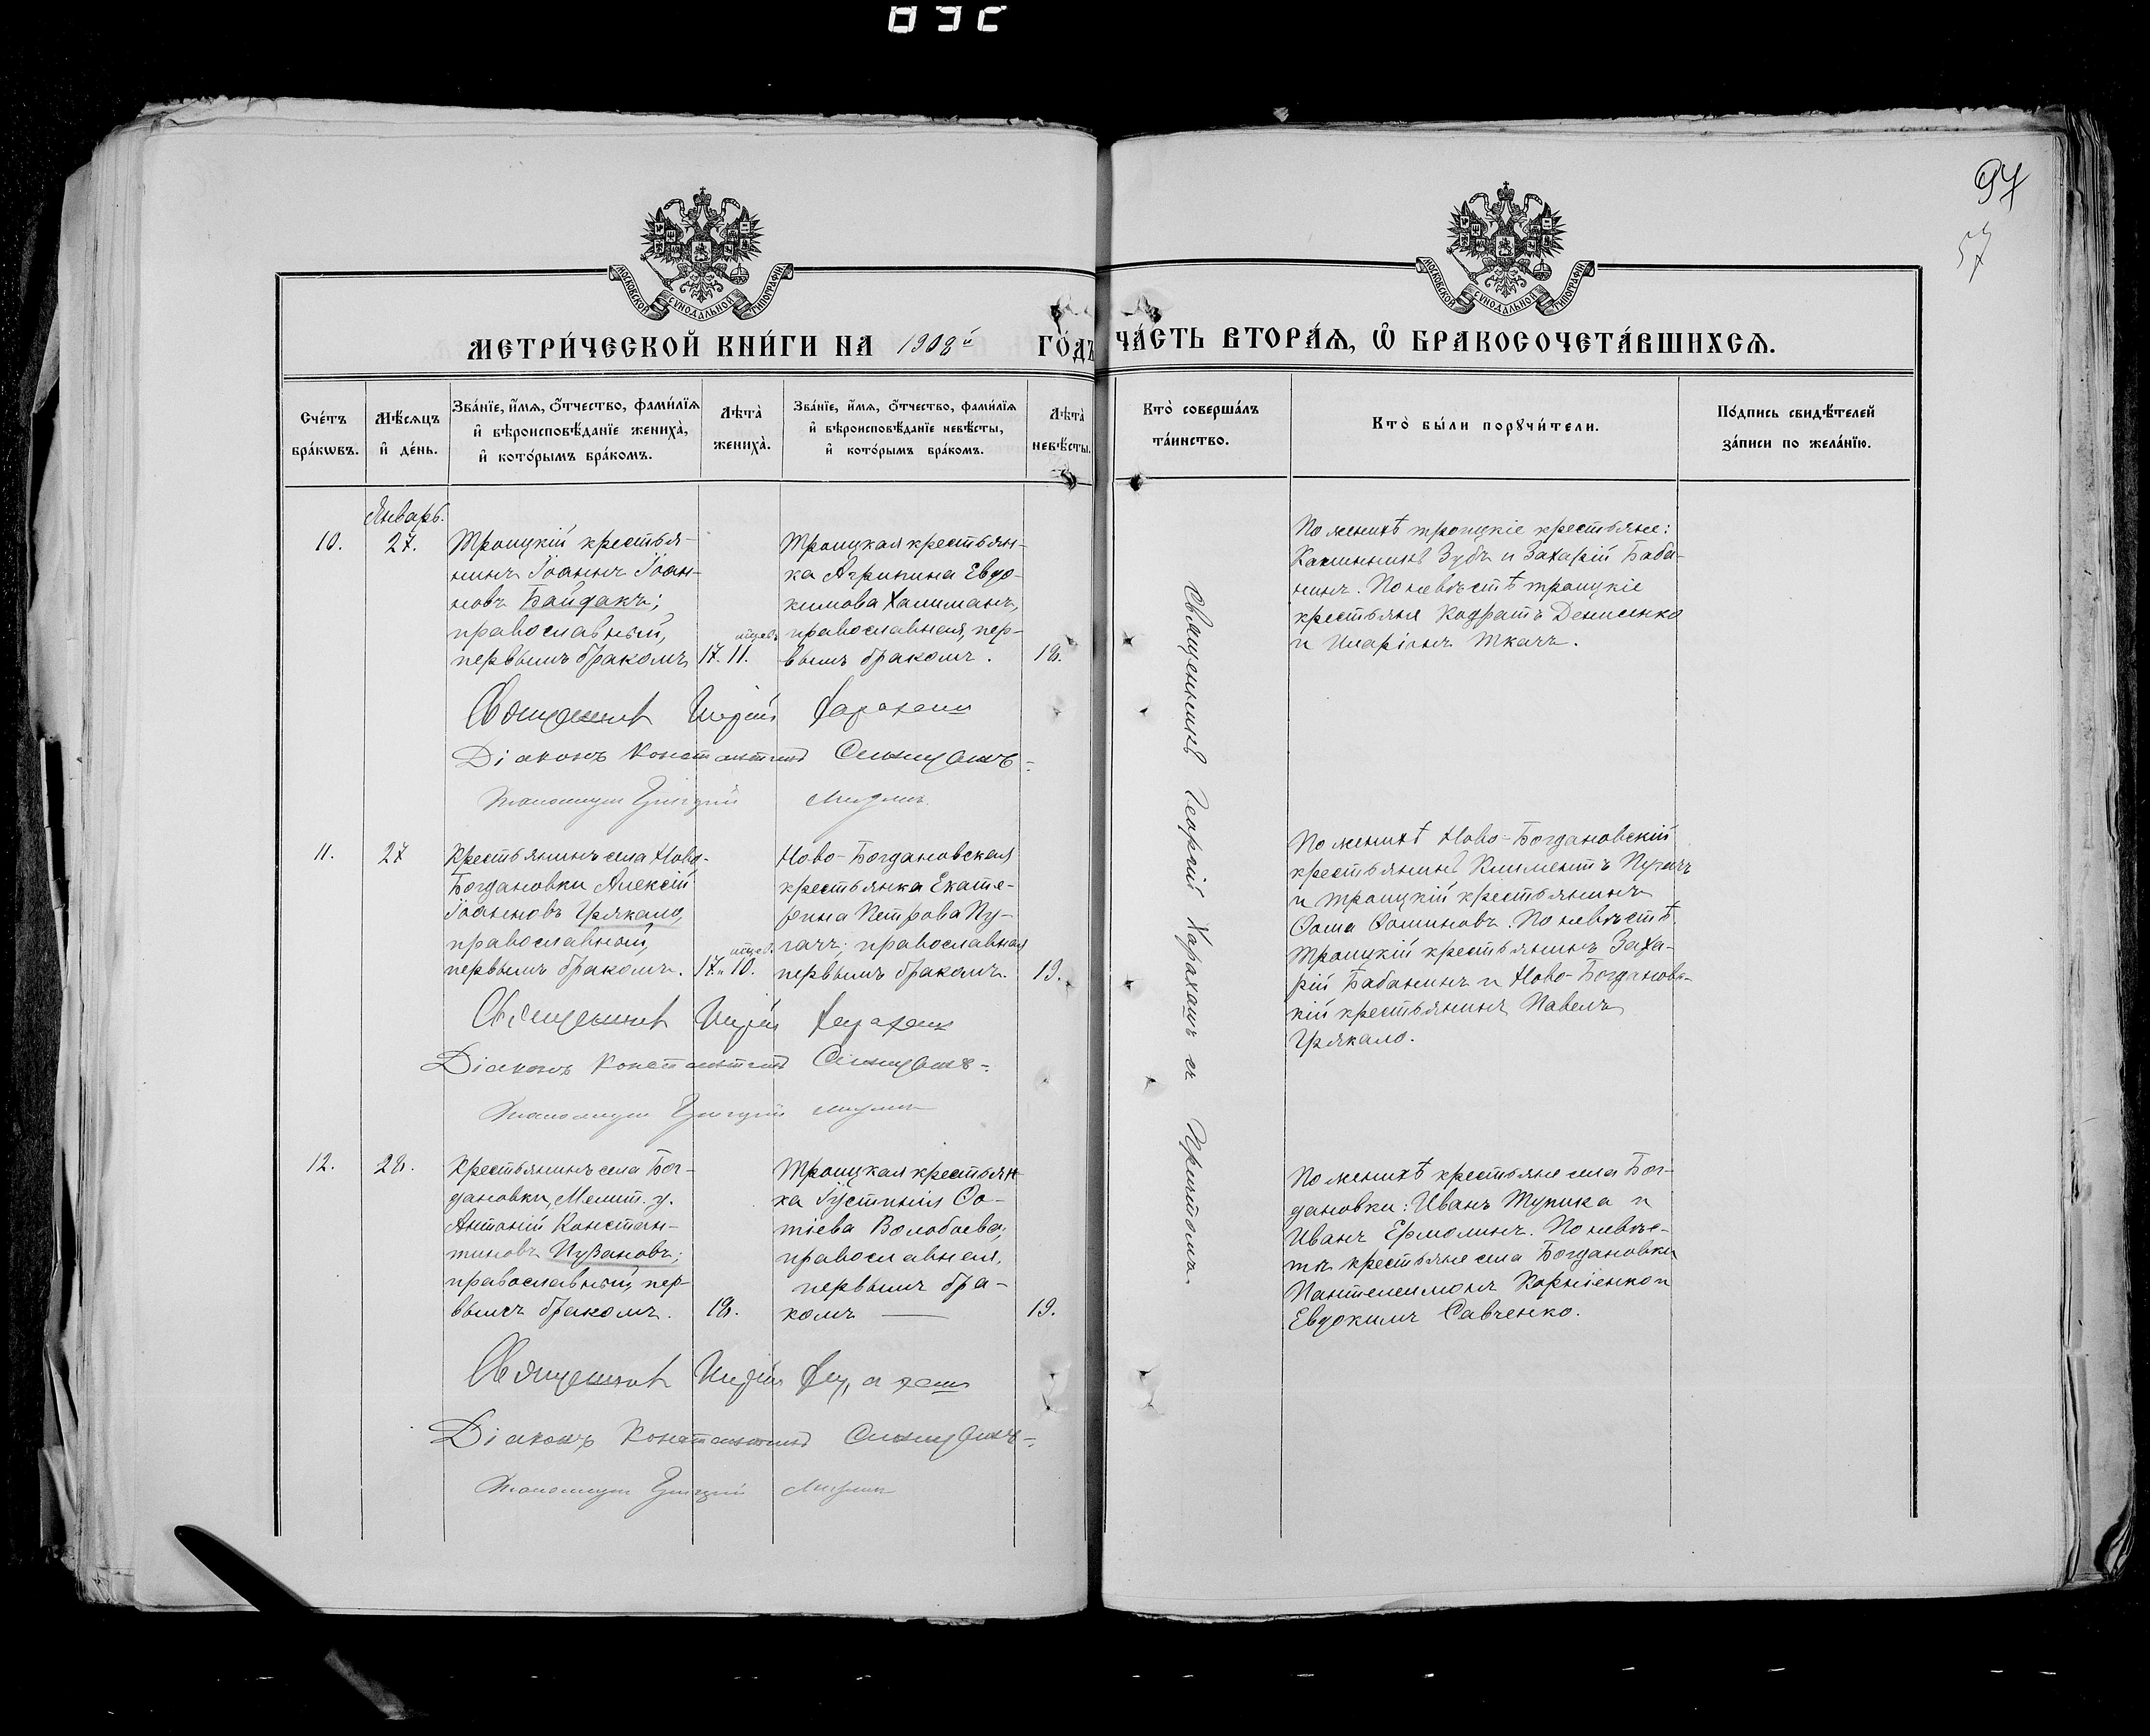 97
57
МОСКОВСКОЙ СѴНОДАЛЬНОЙ ТИПОГРАФІИ
МОСКОВСКОЙ СѴНОДАЛЬНОЙ ТИПОГРАФІИ
МЕТРИ́ЧЕСКОЙ КНИ́ГИ НА 1908й ГО́ДЪ ЧА́СТЬ ВТОРА́Ѧ, Ѽ БРАКОСОЧЕТА́ВШИХСѦ.
Сче́тъ
бра́кѡвъ.
Мѣ́сѧцъ
и҆ де́нь.
Зва́нїе, и҆́мѧ, ѻ҆́тчество, фами́лїѧ
и҆ вѣроисповѣ́данїе жениха̀,
и҆ кото́рымъ бра́комъ.
Лѣта̀
жениха̀.
Зва́нїе, и҆́мѧ, ѻ҆́тчество, фами́лїѧ
и҆ вѣроисповѣ́данїе невѣ́сты,
и҆ кото́рымъ бра́комъ.
Лѣта̀
невѣ́сты.
Кто̀ соверша́лъ
та́инство.
Кто̀ бы́ли порꙋчи́тели.
По́дпись свидѣ́телей
за́писи по жела́нїю.
Январь.
10.
27.
Троицкій крестья-
нинъ Іоаннъ Іоан-
новъ Байдакъ;
православный,
первымъ бракомъ
17. 11.
Троицкая крестьян-
ка Агрипина Евдо-
кимова Халиманъ,
православная, пер-
вымъ бракомъ.
18.
По женихѣ троицкіе крестьяне:
Калинникъ Зубъ и Захарій Баба-
нинъ. По невѣстѣ троицкіе
крестьяне Кодратъ Денисенко
и Иларіонъ Ткачъ.
Священникъ Георгій Харахашъ съ причтомъ.
Священникъ Георгій Харахашъ
Діаконъ Константинъ
Псаломщикъ Григорій
11.
27
Крестьянинъ села Ново-
Богдановки Алексій
Іоанновъ Цѣякало,
православный,
первымъ бракомъ.
17. 10.
Ново-Богдановская
крестьянка Екате-
рина Петрова Пу-
гачъ; православная
первымъ бракомъ.
19.
По женихѣ Ново-Богдановскій
крестьянинъ Климентъ Пугачъ
и троицкій крестьянинъ
Ѳома Ѳоминовъ. По невѣстѣ
троицкій крестьянинъ Заха-
рій Бабанинъ и Ново-Богдановс-
кій крестьянинъ Павелъ
Священникъ Георгій Харахашъ
Діаконъ Константинъ
Псаломщикъ Григорій
12.
28.
Крестьянинъ села Бог-
дановки, Мелит. у.
Антоній Констан-
тиновъ Пузановъ;
православный, пер-
вымъ бракомъ.
18.
Троицкая крестьян-
ка Іустинія Фо-
тіева Волобоева;
православная,
первымъ бра-
комъ
19.
По женихѣ крестьяне села Бог-
дановки: Иванъ Тупика и
Иванъ Ермолинъ. По невѣс-
тѣ крестьяне села Богдановки
Пантелеимонъ Корніенко и
Евдокимъ Савченко.
Священникъ Георгій Харахашъ
Діаконъ Константинъ
Псаломщикъ Григорій